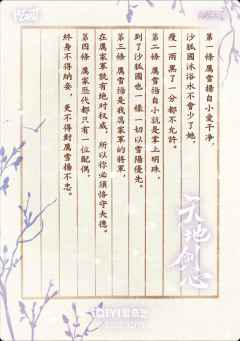 第一條 厲雪揚自小愛干淨，
沙狐國沐浴水不會少了她，
瘦一兩黑了一分都不允許。
第二條 厲雪揚自小就是掌上明珠，
到了沙狐國也一樣 一切以雪陽優先。
第三條 厲雪揚是我萬家軍的將軍，
在厲家軍說有絕对权威，所以祢必須恪守夫德。
第四條 厲家歷代都只有一位配偶，
終身不得納妾，更不得對厲雪揚不忠。
天地劍心
iQIYI 愛奇艺